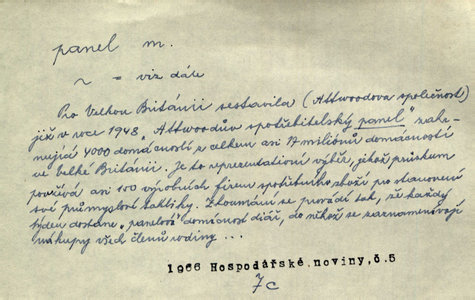 panel m.
~ = viz dále
Pro Velkou Británii sestavila (Attwoodova společnost)
již v roce 1948 „Attwoodův spotřebitelský panel" zahr-
nující 4000 domácností z celkem asi 17 milionů domácností
ve Velké Británii. Je to reprezentační výběr, jehož průzkum
pověřá asi 100 výrobních firem spotřebního zboží pro stanovení
své průmyslové taktiky. Zkoumání se provádí tak, že každý
týden dostane „panelová" domácnost diář, do něhož se zaznamenávají
nákupy všech členů rodiny ...
1966 Hospodářské noviny, č.5
7c